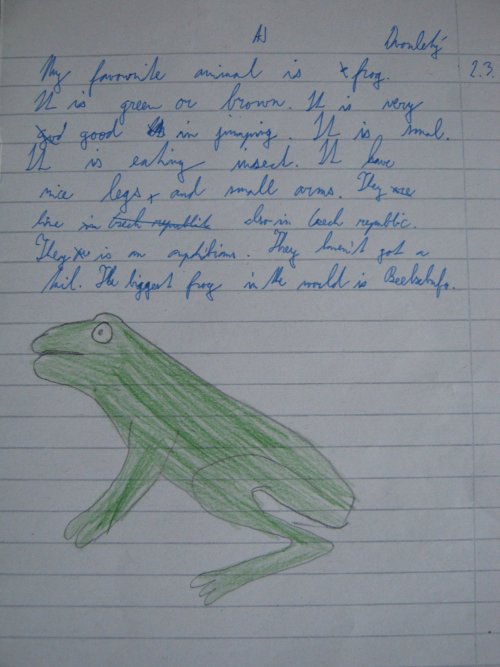 AJ Dvouletý
My favourite animal is frog. 2.3.
It is green or brown. It is very
good good in jumping. It is smal.
It is eating insect. It have
nice legs, and small arms. They
live in Czech republik also in Czech republic.
They is an amphibians. They haven't got a
tail. The biggest frog in the world is Beelzebufo.